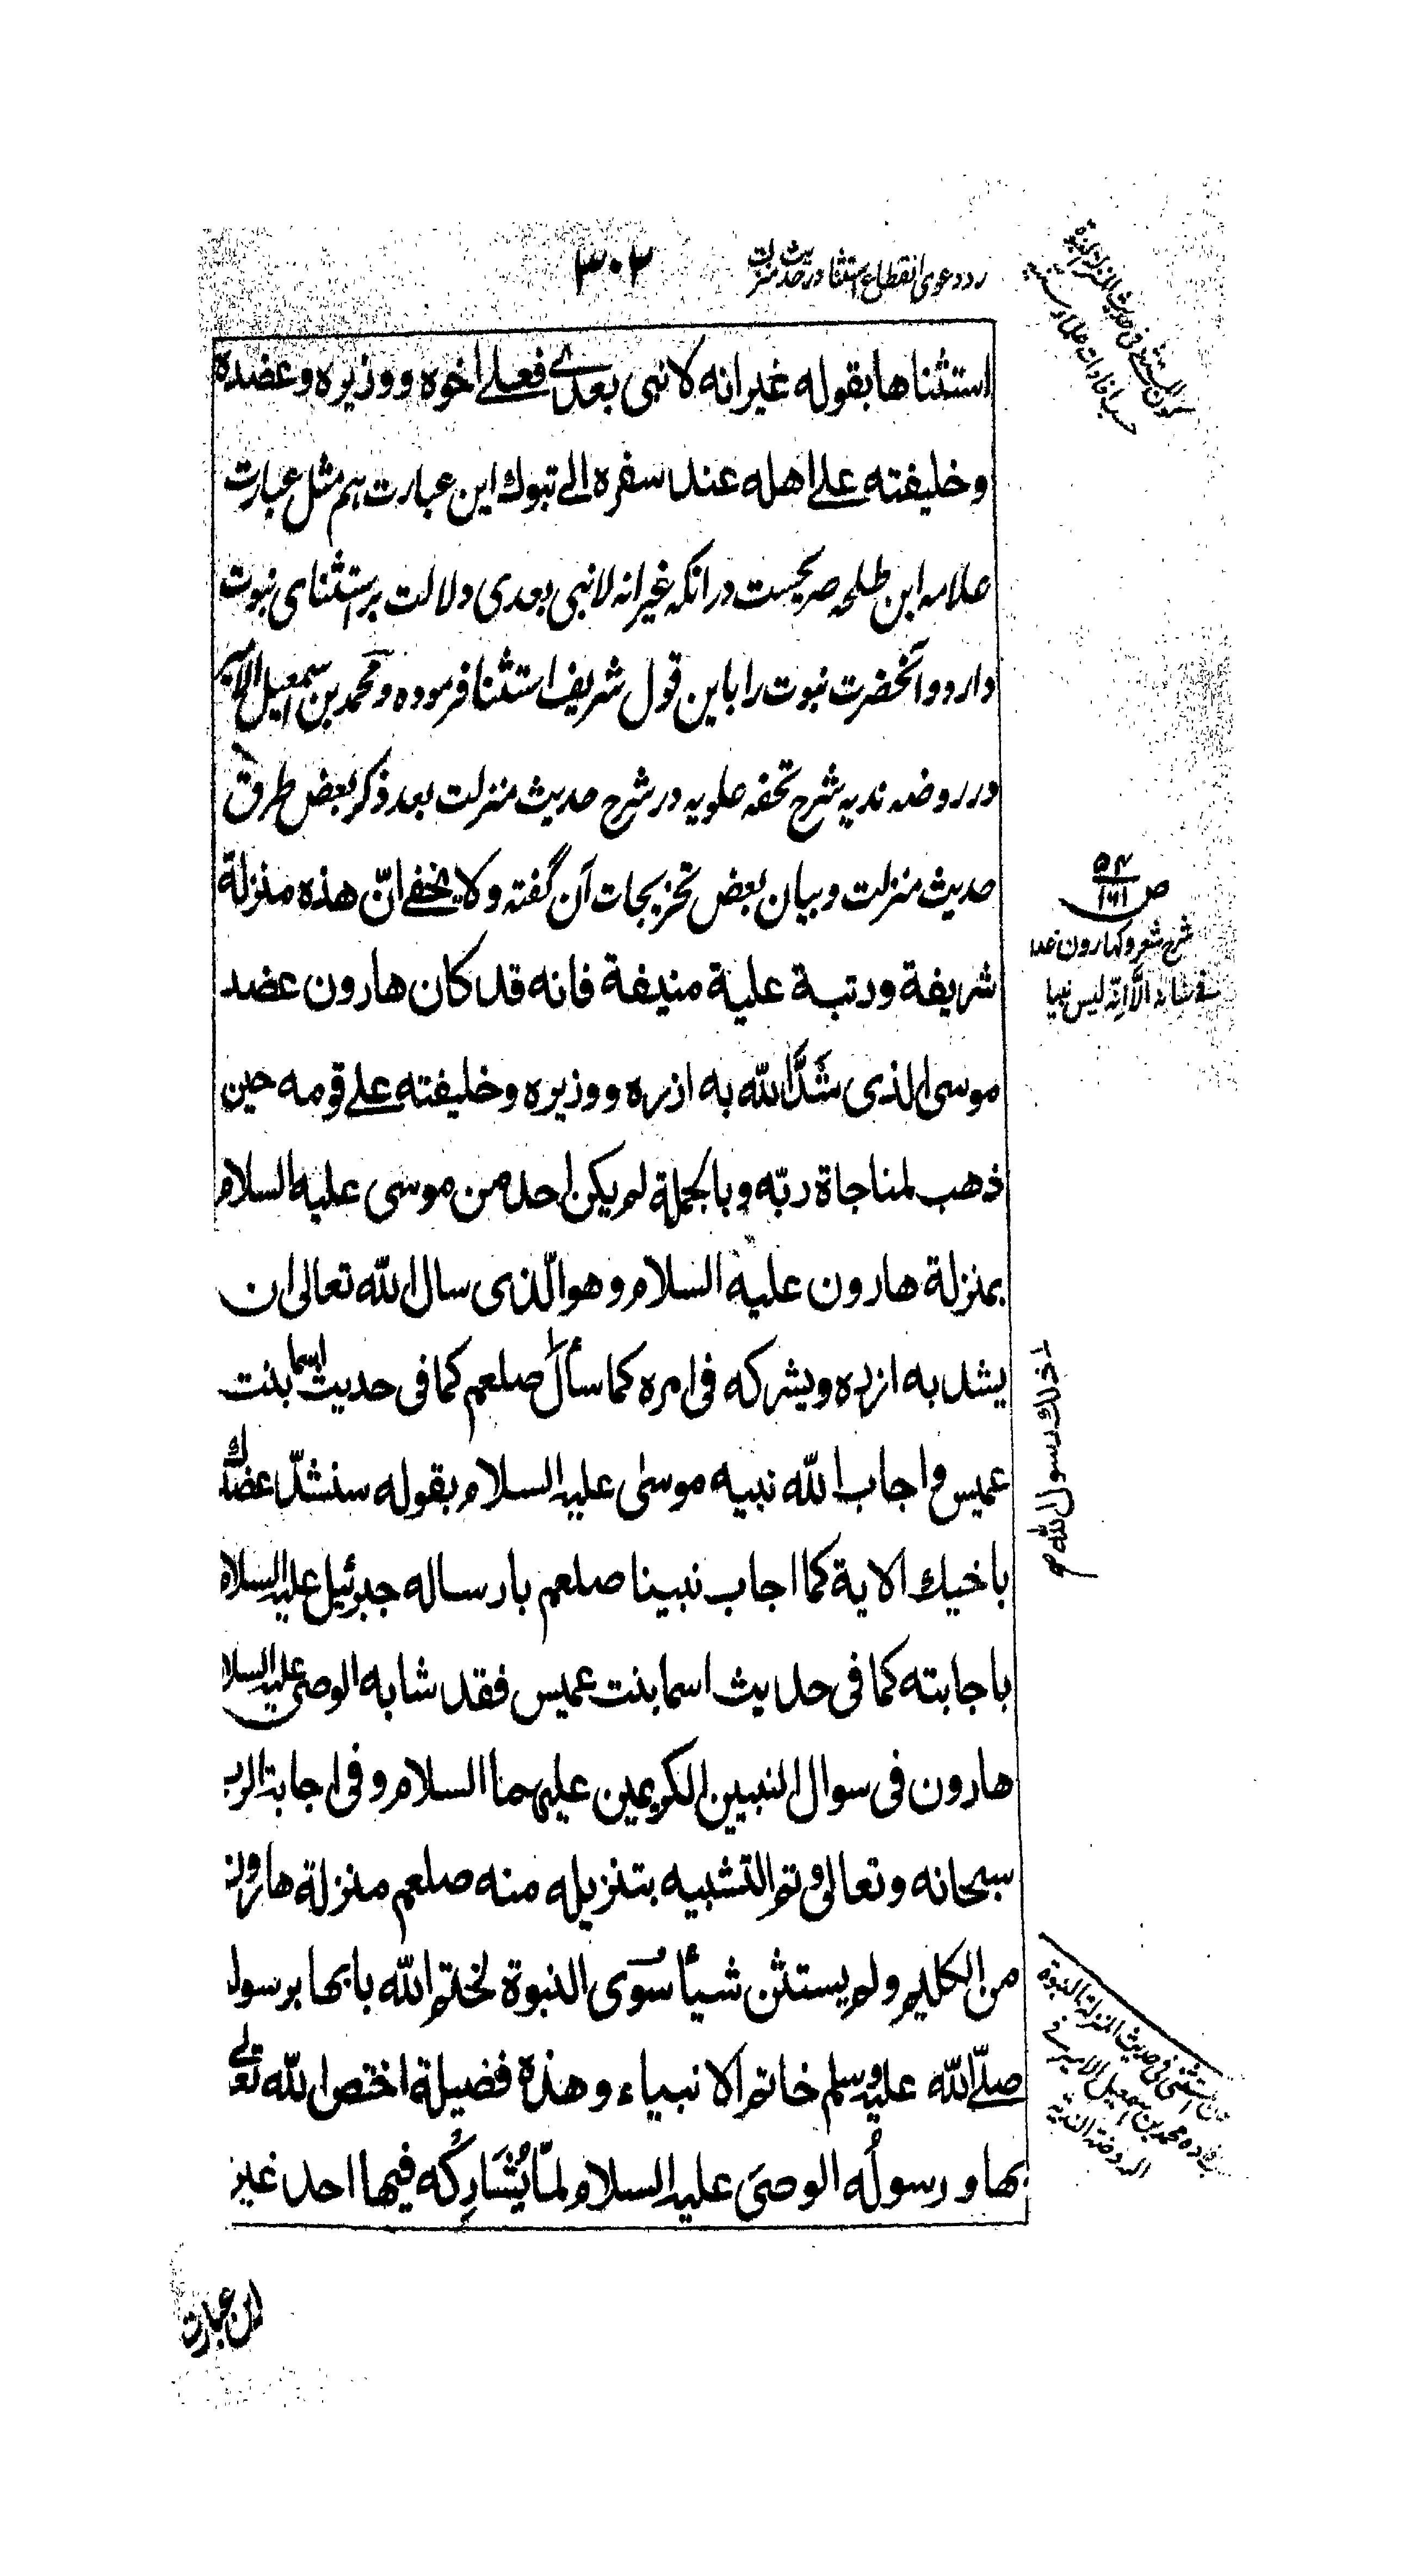 رد دعوی انقطاع استثنا در حدیث منزلت
۳۰۲
استثناها بقوله غیر انه لا نبی بعدی فعلی اخوه و وزیره و عضده
و خلیفته علی اهله عند سفره الی تبوك این عبارت هم مثل عبارت
علامه ابن طلحه صریحست در انکه غیر انه لا نبی بعدی دلالت بر استثنای نبوت
دارد و آنحضرت نبوت را باین قول شریف استثنا فرموده و محمد بن اسمعیل الامیر
در روضه ندیه شرح تحفه علویه در شرح حدیث منزلت بعد ذکر بعض طرق
حدیث منزلت و بیان بعض تخریجات آن گفته و لا یخفی انّ هذه منزلة
شریفة و رتبة علیة منیفة فانه قد کان هارون عضد
موسی الذی شَدَّ الله به ازره و وزیره و خلیفته علی قومه حین
ذهب لمناجاة ربّه و بالجملة لم یکن احد من موسی علیه السلام
بمنزلة هارون علیه السلام و هو الّذی سال الله تعالی ان
یشد به ازره و یشرکه فی امره کما سأل صلعم کما فی حدیث اسما بنت
عمیس و اجاب الله نبیه موسی علیه السلام بقوله سنشدّ عضدك
باخیك الایة کما اجاب نبینا صلعم بارساله جبرئیل علیه السلام
باجابته کما فی حدیث اسما بنت عمیس فقد شابه الوصی علیه السلام
هارون فی سوال النبیین الکریمین علیهما السلام و فی اجابة الرب
سبحانه و تعالی و تم التشبیه بتنزیله منه صلعم منزلة هارون
من الکلیم و لم یستثن شیأ سوی النبوة لختم الله بابها برسوله
صلّی الله علیه و سلم خاتم الانبیاء و هذه فضیلة اختص الله تعالی
بها و رسولُه الوصیَ علیه السلام لمّا یُشَارِكُه فیها احد غیره
ذلك رسول الله ص
ص ۵۴/۱۶۱
شرح شعر و کهارون غدا
فی شانه الّا انّه لیس نبیا
این عبارت